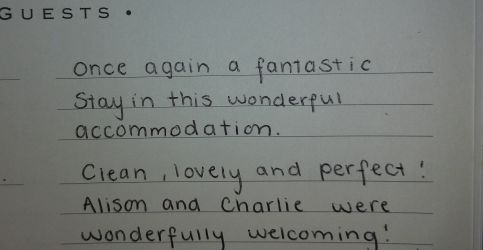 GUESTS •
Once again a fantastic
Stay in this wonderful
accommodation.
Clean, lovely and perfect!
Alison and Charlie were
wonderfully welcoming!